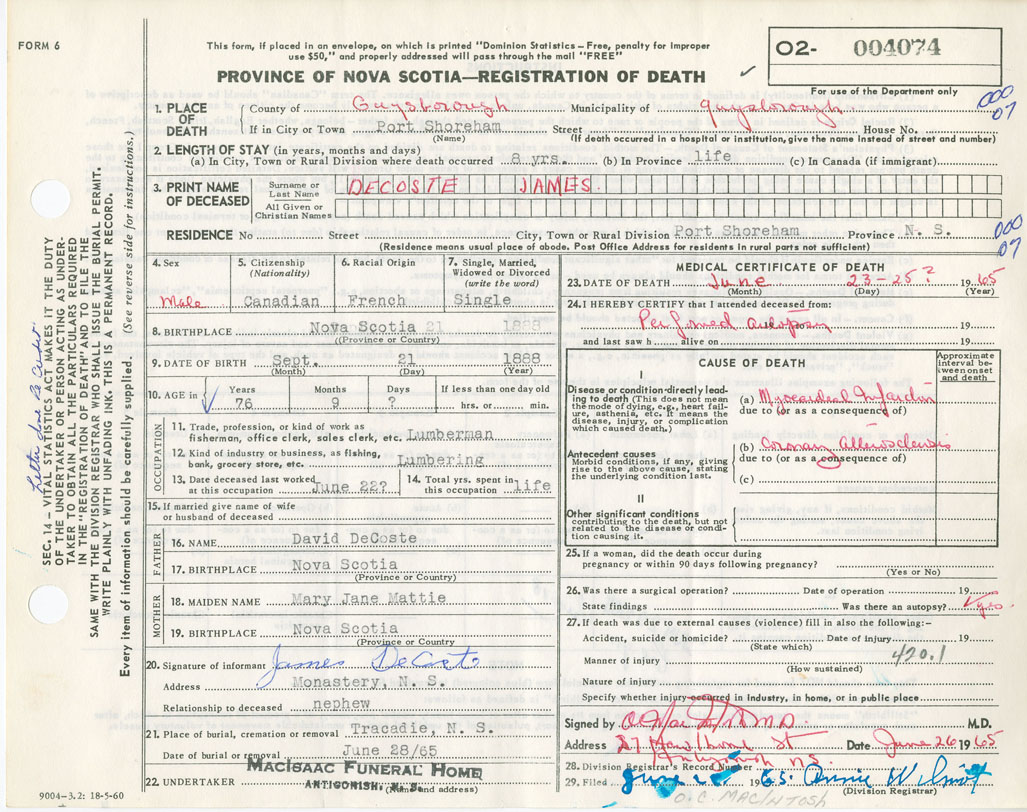 FORM 6
This form, if placed in an envelope, on which is printed "Dominion Statistics – Free, penalty for improper
use $50," and properly addressed will pass through the mail "FREE"
PROVINCE OF NOVA SCOTIA—REGISTRATION OF DEATH
O2- 004074
For use of the Department only
000
07
1. PLACE OF DEATH County of Guysborough Municipality of Guysborough
If in City or Town Port Shoreham Street House No.
(Name) (If death occurred in a hospital or institution, give the name instead of street and number)
2. LENGTH OF STAY (in years, months and days)
(a) In City, Town or Rural Division where death occurred 8 yrs. (b) In Province life (c) In Canada (if immigrant)
3. PRINT NAME OF DECEASED Surname or Last Name DECOSTE JAMES
All Given or Christian Names
RESIDENCE No Street City, Town or Rural Division Port Shoreham Province N. S.
(Residence means usual place of abode. Post Office Address for residents in rural parts not sufficient)
000
07
4. Sex Male
5. Citizenship (Nationality) Canadian
6. Racial Origin French
7. Single, Married, Widowed or Divorced (write the word) Single
8. BIRTHPLACE Nova Scotia 21 1888
(Province or Country)
9. DATE OF BIRTH Sept. 21 1888
(Month) (Day) (Year)
10. AGE in Years 76 Months 9 Days ? If less than one day old
hrs. or min.
OCCUPATION
11. Trade, profession, or kind of work as
fisherman, office clerk, sales clerk, etc. Lumberman
12. Kind of industry or business, as fishing,
bank, grocery store, etc. Lumbering
13. Date deceased last worked at this occupation June 22?
14. Total yrs. spent in this occupation life
15. If married give name of wife
or husband of deceased
FATHER
16. NAME David DeCoste
17. BIRTHPLACE Nova Scotia
(Province or Country)
MOTHER
18. MAIDEN NAME Mary Jane Mattie
19. BIRTHPLACE Nova Scotia
(Province or Country
20. Signature of informant James DeCoste
Address Monastery, N. S.
Relationship to deceased nephew
21. Place of burial, cremation or removal Tracadie, N. S.
Date of burial or removal June 28/65
22. UNDERTAKER MacIsaac Funeral Home
ANTIGONISH, N. S.
(Name and address)
9004-3.2: 18-5-60
MEDICAL CERTIFICATE OF DEATH
23. DATE OF DEATH June 23-25? 1965
(Month) (Day) (Year)
24. I HEREBY CERTIFY that I attended deceased from:
Performed autopsy 19
and last saw h alive on 19
CAUSE OF DEATH
Approximate interval between onset and death
I
Disease or condition directly leading to death (This does not mean the mode of dying, e.g., heart failure, asthenia, etc. It means the disease, injury, or complication which caused death.)
(a) Myocardial Infarction
due to (or as a consequence of)
Antecedent causes
Morbid conditions, if any, giving rise to the above cause, stating the underlying condition last.
(b) Coronary
due to (or as a consequence of)
(c)
II
Other significant conditions
contributing to the death, but not related to the disease or condition causing it.
25. If a woman, did the death occur during
pregnancy or within 90 days following pregnancy?
(Yes or No)
26. Was there an surgical operation? Date of operation 19
State findings Was there an autopsy? yes
27. If death was due to external causes (violence) fill in also the following:-
Accident, suicide or homicide? Date of injury 19
(State which)
Manner of injury 420.1
(How sustained)
Nature of injury
Specify whether injury occurred in industry, in home, or in public place
Signed by M.D.
Address Date June 26 1965
28. Division Registrar's Record Number
29. Filed June
(Division Registrar)
O.C. MACINTOSH
SEC. 14 – VITAL STATISTICS ACT MAKES IT THE DUTY
OF THE UNDERTAKER OR PERSON ACTING AS UNDER-
TAKER TO OBTAIN ALL THE PARTICULARS REQUIRED
IN THE "REGISTRATION OF DEATH" AND TO FILE THE
SAME WITH THE DIVISION REGISTRAR WHO SHALL ISSUE THE BURIAL PERMIT.
WRITE PLAINLY WITH UNFADING INK. THIS IS A PERMANENT RECORD.
Every item of information should be carefully supplied. (See reverse side for instructions.)